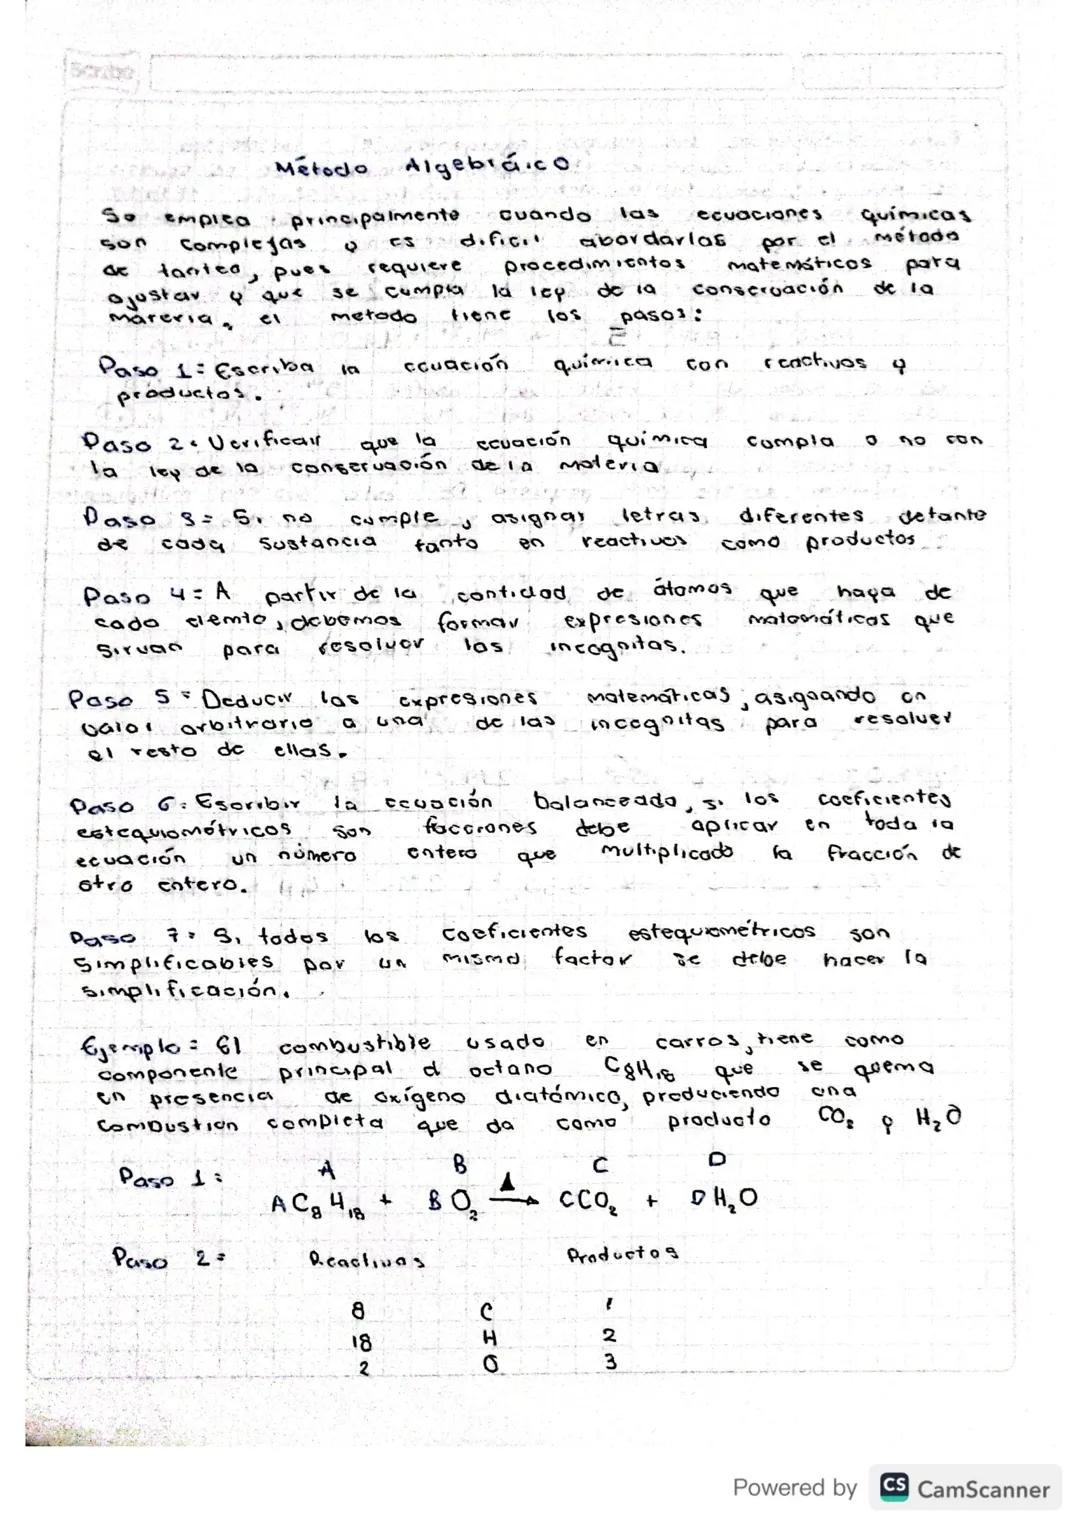 Scribe
Método Algebráico
Se emplea principalmente cuando las ecuaciones químicas
son complejas y es dificil abordarlas por el método
de tanteo, pues requiere procedimientos matemáticos para
ajustar y que se cumpla la ley de la conservación de la
materia, el metodo tiene los pasos:
Paso 1: Escriba la ecuación química con reactivos y
productos.
Paso 2: Verificar que la ecuación química cumpla o no con
la ley de la conservación de la materia
Paso 3= Si no cumple, asignar letras diferentes detante
de cada sustancia tanto en reactivos como productos
Paso 4= A partir de la cantidad de átomos que haya de
cada elemto, debemos formar expresiones matemáticas que
sirvan para resolver las incognitas.
Paso 5= Deducir las expresiones matemáticas, asignando un
valor arbitrario a una de las incognitas para resolver
el resto de ellas.
Paso 6: Escribir la ecuación balanceada, si los coeficientes
estequiométricos son facciones debe aplicar en toda la
ecuación un número entero que multiplicado la fracción de
otro entero.
Paso 7: Si todos los coeficientes estequiométricos son
simplificables por un mismo factor se debe hacer la
simplificación.
Ejemplo= El combustible usado en carros, tiene como
componente principal el octano C8H18 que se quema
en presencia de oxígeno diatómico, produciendo una
combustion completa que da como producto CO2 y H2O
Paso 1: A B C D
A C8H18 + B O2 Δ→ C CO2 + D H2O
Paso 2= Reactivos Productos
8 C 1
18 H 2
2 O 3
Powered by CS CamScanner